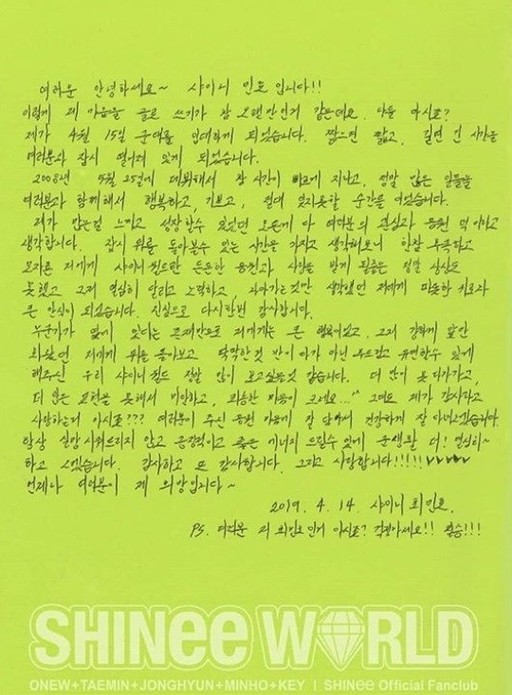 여러분 안녕하세요~ 샤이니 민호입니다!!
이렇게 제 마음을 글로 쓰기가 참 오랜만인거 같은데요. 다들 아시죠?
제가 4월 15일 군대를 입대하게 되었습니다. 짧으면 짧고, 길면 긴 시간을
여러분과 잠시 떨어져 있게 되었습니다.
2008년 5월 25일에 데뷔해서 참 시간이 빠르게 지나고, 정말 많은 일들을
여러분과 함께해서 행복하고, 기쁘고, 절대 잊지못할 순간을 여러분과 있었습니다.
제가 많은걸 느끼고 성장할수 있었던 모든게 다 여러분의 관심과 응원 덕이라고
생각합니다. 잠시 뒤를 돌아볼수 있는 시간을 가지고 생각해보니 한참 부족하고
모자른 저에게 샤이니월드란 든든한 응원과 사랑을 받게 될줄은 정말 상상도
못했고 그저 열심히 달리고 노력하고, 나아가는것만 생각했던 저에게 따뜻한 위로와
큰 안식이 되었습니다. 진심으로 다시한번 감사합니다.
누군가가 옆에 있다는 존재만으로 저에게는 큰 행복이었고, 그저 강하게 앞만
봐왔던 저에게 뒤를 돌아보고 딱딱한것 만이 아닌 부드럽고 유연할수 있게
해주신 우리 샤이니 월드 정말 많이 보고싶을것 같습니다. 더 많이 못 다가가고,
더 많은 표현을 못해서 미안하고, 죄송한 마음이 크네요..." 그래도 제가 감사하고
사랑하는거 아시죠??? 여러분이 주신 응원 마음에 잘 담아서 건강하게 잘 다녀오겠습니다.
항상 실망시켜드리지 않고 긍정적이고 좋은 에너지 드릴수 있게 군생활 더! 열심히~
하고 오겠습니다. 감사하고 또 감사합니다. 그리고 사랑합니다!!!!!
언제나 여러분이 제 희망입니다~
2019. 4. 14. 샤이니 최민호.
PS. 여러분 저 최민호인거 아시죠? 걱정마세요!! 필승!!!
SHINee WORLD
ONEW+TAEMIN+JONGHYUN+MINHO+KEY | SHINee Official Fanclub